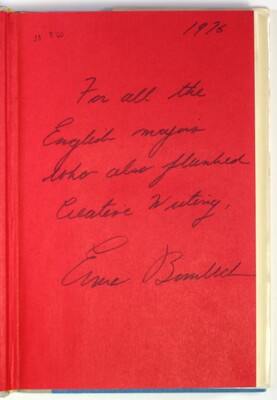 1976
For all the
English majors
who also flunked
Creative Writing,
Erma Bombeck